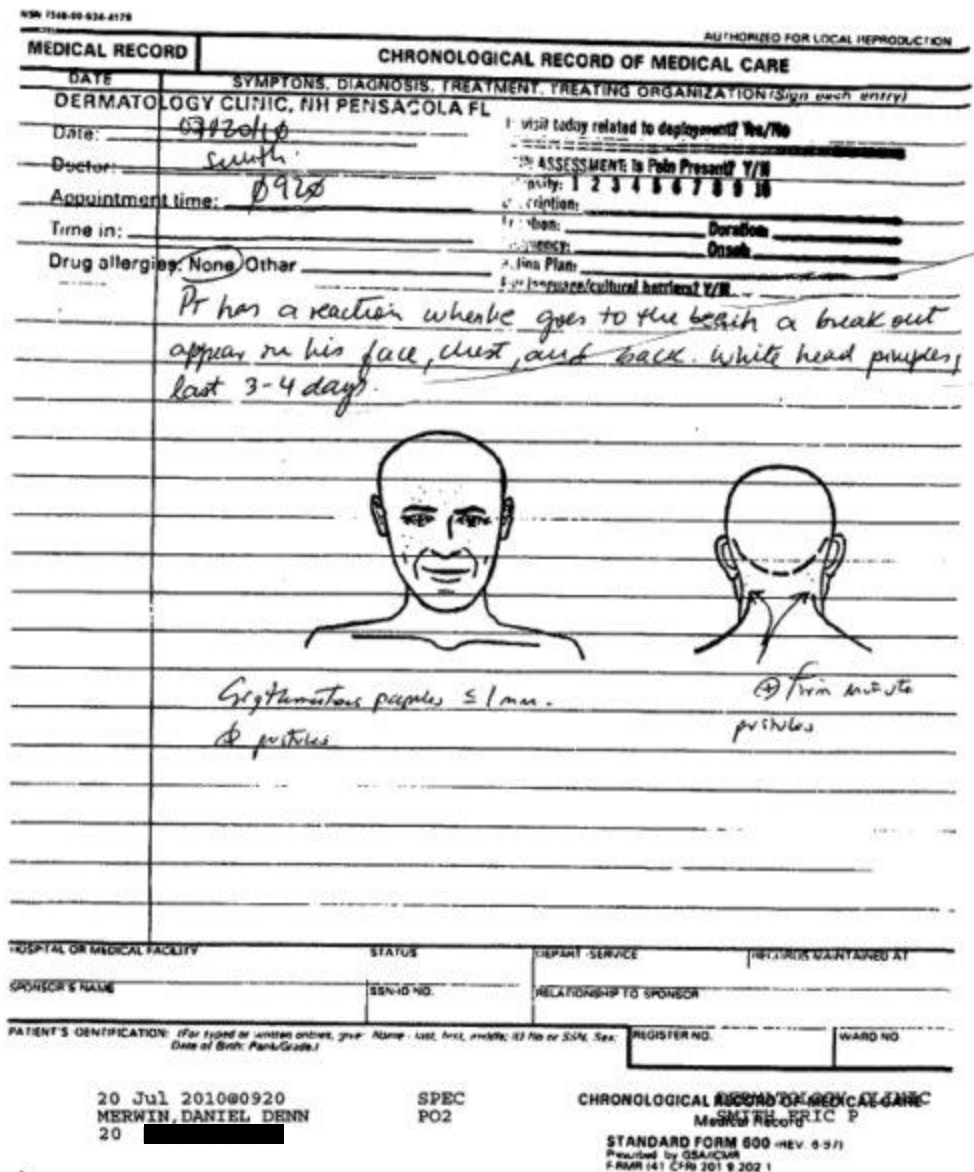 NSN 7540-00-634-4176
AUTHORIZED FOR LOCAL REPRODUCTION
MEDICAL RECORD
CHRONOLOGICAL RECORD OF MEDICAL CARE
DATE
SYMPTOMS, DIAGNOSIS, TREATMENT, TREATING ORGANIZATION (Sign each entry)
DERMATOLOGY CLINIC, NH PENSACOLA FL
Date: 07/20/10
Doctor: Smith
Appointment time: 0920
Time in:
Drug allergies: None Other
visit today related to deployment? Yes/No
ASSESSMENT: Is Pain Present? Y/N
1 2 3 4 5 6 7 8 9 10
Duration:
Onset:
Plan:
language/cultural barriers? Y/N
Pt has a reaction when he goes to the beach a break out
appear on his face, chest, and back. White head pimples,
last 3-4 days.
Erythematous papules ≤ 1 mm.
Ø pustules
⊕ firm minute
pustules
HOSPITAL OR MEDICAL FACILITY
STATUS
DEPART./SERVICE
RECORDS MAINTAINED AT
SPONSOR'S NAME
SSN/ID NO.
RELATIONSHIP TO SPONSOR
PATIENT'S IDENTIFICATION: (For typed or written entries, give: Name - last, first, middle; ID No or SSN; Sex; Date of Birth; Rank/Grade.)
REGISTER NO.
WARD NO
20 Jul 2010@0920 SPEC DERMATOLOGY CLINIC
MERWIN,DANIEL DENN PO2 SMITH,ERIC P
20
CHRONOLOGICAL RECORD OF MEDICAL CARE
Medical Record
STANDARD FORM 600 (REV. 6-97)
Prescribed by GSA/ICMR
FIRMR (41 CFR) 201-9.202-1